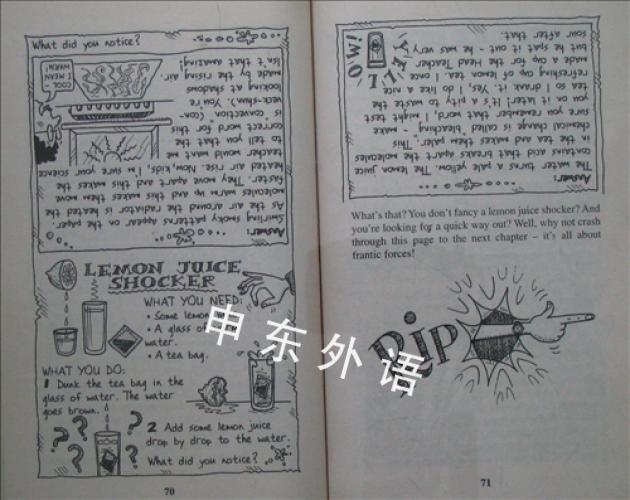 What did you notice?
Answer:
Swirling smoky patterns appear on the paper.
As the air around the radiator is heated the
molecules warm up and this makes them move
faster. They move apart and this makes the
heated air rise. Now, kids, I'm sure your science
teacher would want me
to tell you that the
correct word for this
is convection (con-
veck-shun). You're
looking at shadows
made by the rising air.
Isn't that amazing!
COOL
- I MEAN
WARM!
LEMON JUICE
SHOCKER
WHAT YOU NEED:
• Some lemon
• A glass of
water.
• A tea bag.
WHAT YOU DO:
1 Dunk the tea bag in the
glass of water. The water
goes brown.
2 Add some lemon juice
drop by drop to the water.
What did you notice?
70
Answer:
The water turns a pale yellow. The lemon juice
contains acid that breaks apart the molecules
in the tea and makes them paler. This
chemical change is called bleaching - make
sure you remember that word, I might test
you on it later! It's a pity to waste the
tea so I drank it. Yes, I do like a nice
refreshing cup of lemon tea. I once
made a cup for the Head Teacher
but he spat it out - he was very
sour after that.
YELLOW!
What's that? You don't fancy a lemon juice shocker? And
you're looking for a quick way out? Well, why not crash
through this page to the next chapter – it's all about
frantic forces!
Rip
71
申东外语